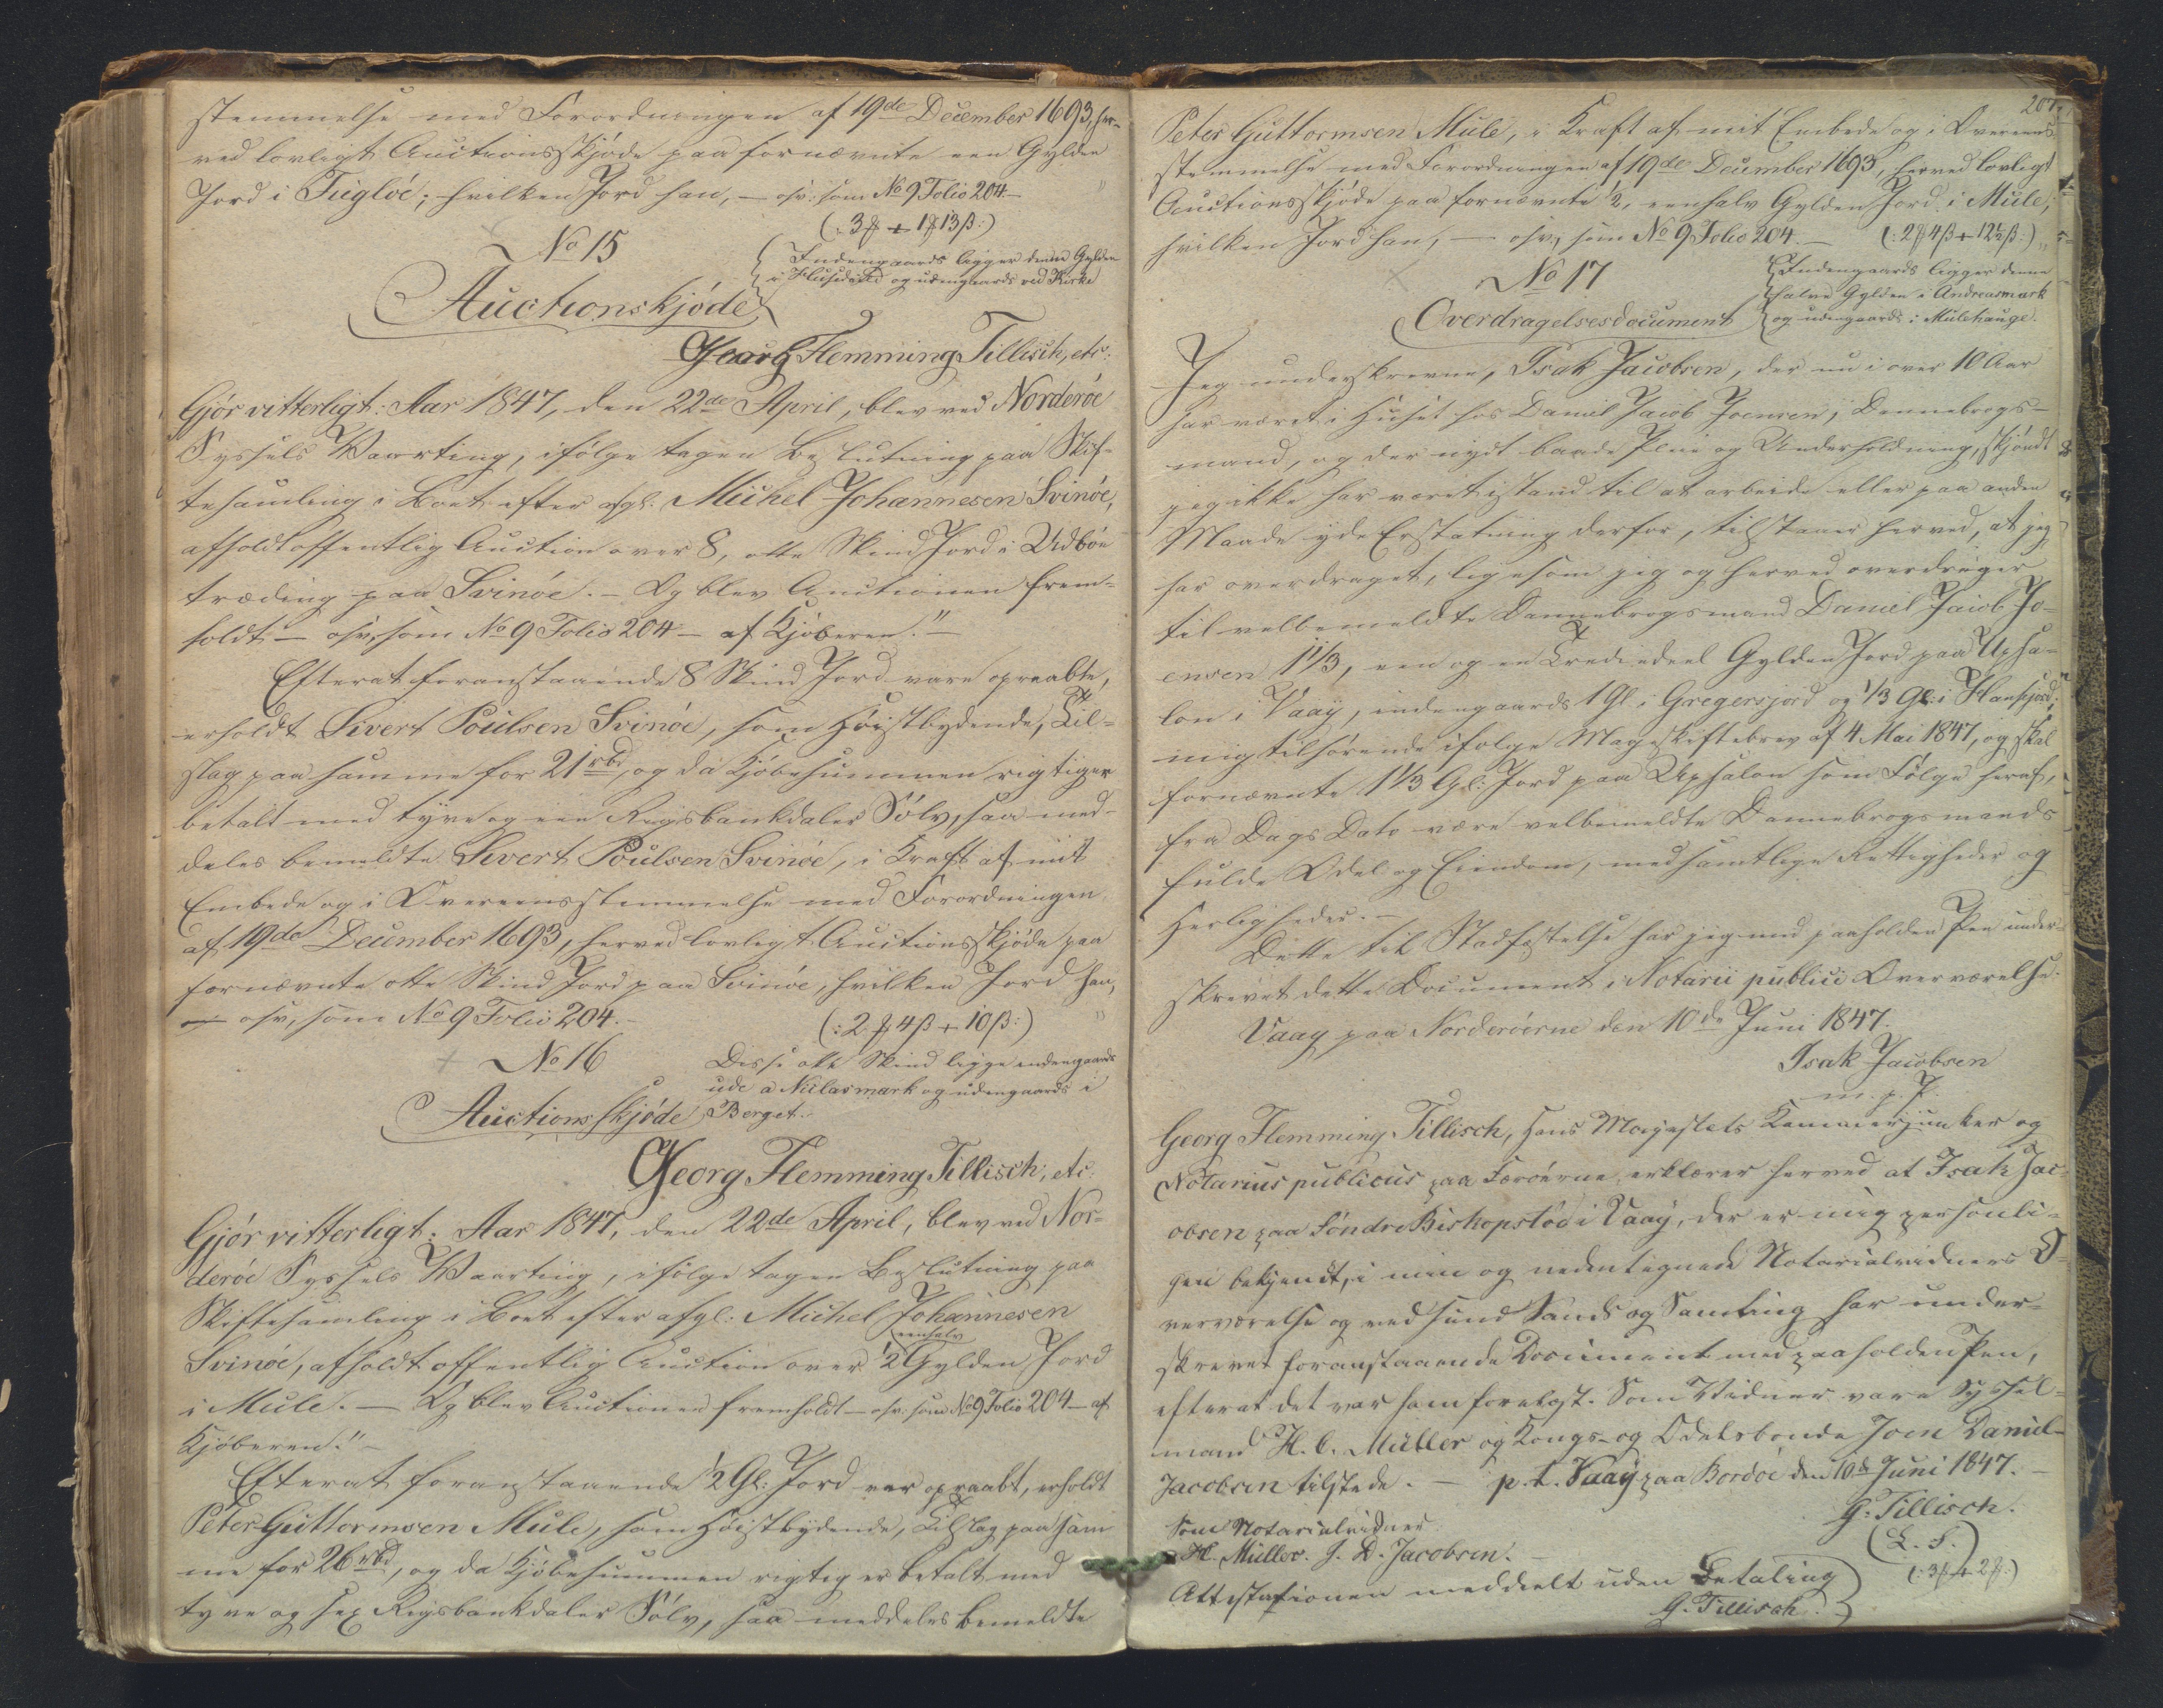 stemmelse med Forordningen af 19de December 1693, her-
ved lovligt Auctionsskjøde paa fornævnte een Gylden
Jord i Fugløe; hvilken Jord han, — osv. som No 9 Folio 204 —
(: 3 ℔ + 1 ℔ 13 ß :)
No 15
Indengaards ligger denne Gylden
i og udengaards ved Kirke
Auctionskjøde
Georg Flemming Tillisch, etc:
Gjør vitterligt: Aar 1847, den 22de April, blev ved Norderøe
Syssels Vaarting, ifølge tagen Beslutning paa Skif-
tesamling i Boet efter afgl. Michel Johannesen Svinøe,
afholdt offentlig Auction over 8, otte Skind Jord i Udbøe
træding paa Svinøe. — Og blev Auctionen frem-
holdt — osv, som No 9 Folio 204 — af Kjøberen." —
Efterat foranstaaende 8 Skind Jord vare opraabte,
erholdt Sivert Poulsen Svinøe, som Høistbydende, Til-
slag paa samme for 21 rbd, og da Kjøbesummen rigtig er
betalt med tyve og een Rigsbankdaler Sølv, saa med-
deles bemeldte Sivert Poulsen Svinøe, i Kraft af mit
Embede og i Overeensstemmelse med Forordningen
af 19de December 1693, herved lovligt Auctionsskjøde paa
fornævnte otte Skind Jord paa Svinøe, hvilken Jord han,
— osv, som No 9 Folio 204. — (: 2 ℔ 4 ß + 10 ß :)
No 16
Disse otte Skind ligge indengaards
ude a Niclasmark og udengaards i
Auctionsskjøde Berget.
Georg Flemming Tillisch, etc.
Gjør vitterligt: Aar 1847, den 22de April, blev ved Nor-
derøe Syssels Vaarting, ifølge tagen Beslutning paa
Skiftesamling i Boet efter afgl: Michel Johannesen
eenhalv
Svinøe, afholdt offentlig Auction over ½ Gylden Jord
i Mule. — Og blev Auctionen fremholdt — osv. som No 9 Folio 204 — af
Kjøberen." —
Efterat foranstaaende ½ Gl: Jord var opraabt, erholdt
Peter Guttormsen Mule, som Høistbydende, Tilslag paa sam
me for 26 rbd, og da Kjøbesummen rigtig er betalt med
tyve og sex Rigsbankdaler Sølv, saa meddeles bemeldte
207.
Peter Guttormsen Mule, i Kraft af mit Embede og i Overeens-
stemmelse med Forordningen af 19de December 1693, herved lovligt
Auctionsskjøde paa fornævnte ½, eenhalv Gylden Jord i Mule,
hvilken Jord han, — osv, som No 9 Folio 204. — (: 2 ℔ 4 ß + 12½ ß :)
No 17
Indengaards ligger denne
halve Gylden i Andreasmark
og udengaards i Mulehauge.
Overdragelsesdocument
Jeg underskrevne, Isak Jacobsen, der nu i over 10 Aar
har været i Huset hos Daniel Jacob Joensen, Dannebrogs-
mand, og der nydt baade Pleie og Underholdning, skjøndt
jeg ikke har været istand til at arbeide eller paa anden
Maade yde Erstatning derfor, tilstaaer herved, at jeg
har overdraget, ligesom jeg og herved overdrager
til velbemeldte Dannebrogsmand Daniel Jacob Jo-
ensen 1⅓, een og en Trediedeel Gylden Jord paa Upsa-
lon i Vaag, indengaards 1 Gl. i Gregersjord og ⅓ Gl: i Hansjord;
mig tilhørende ifølge Mageskiftebrev af 4 Mai 1847, og skal
fornævnte 1⅓ Gl: Jord paa Upsalon som Følge heraf,
fra Dags Dato være velbemeldte Dannebrogsmands
fulde Odel og Eiendom, med samtlige Rettigheder og
Herligheder. —
Dette til Stadfæstelse har jeg med paaholden Pen under-
skrevet dette Document i Notarii publici Overværelse.
Vaag paa Norderøerne den 10de Juni 1847.
Isak Jacobsen
m. p. P.
Georg Flemming Tillisch, Hans Majestets Kammerjunker og
Notarius publicus paa Færøerne, erklærer herved at Isak Jac-
obsen paa Søndre Biskopstød i Vaag, der er mig personli-
gen bekjendt, i min og nedentegnede Notarialvidners O-
verværelse og ved sund Sands og Samling har under-
skrevet foranstaaende Document med paaholden Pen,
efterat det var ham forelæst. Som Vidner vare Syssel-
mand H. C. Müller og Kongs- og Odelsbonde Joen Daniel-
Jacobsen tilstede. — p. t. Vaag paa Bordøe den 10de Juni 1847. —
G. Tillisch.
(L. S.)
Som Notarialvidner
H. Müller. J. D. Jacobsen. —
(: 3 ℔ + 2 ℔ :)
Attestationen meddeelt uden Betaling
G. Tillisch.